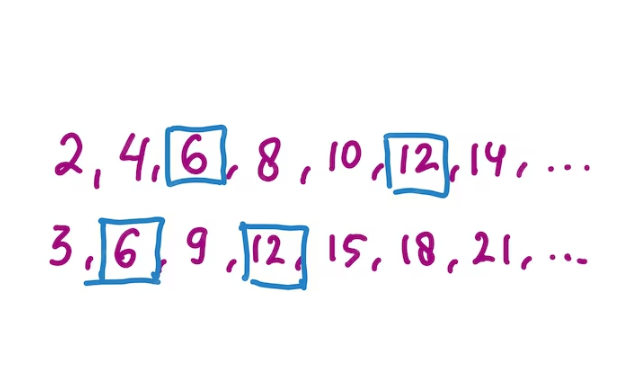 2, 4, 6, 8, 10, 12, 14, ...
3, 6, 9, 12, 15, 18, 21, ...